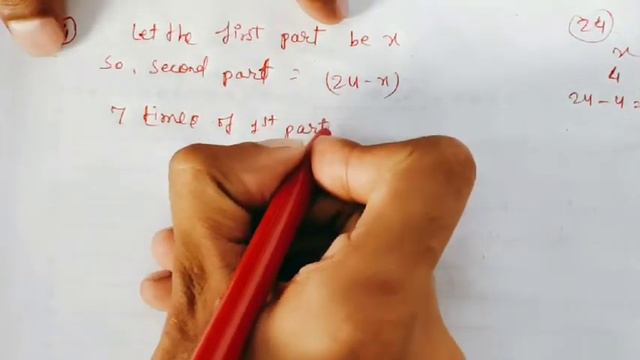 Let the first part be x
So, second part = (24-x)
7 times of 1st part
24
x
4
24-4=